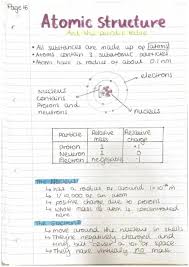 Page 16
Atomic Structure
And the periodic table
• All substances are made up of atoms
• Atoms contain 3 subatomic particles
• Atoms have a radius of about 0.1 nm
electrons
Nucleus
contains
Protons and
neutrons
nucleus
Particle Relative mass Relative charge
Proton 1 +1
Neutron 1 0
Electron negligible -1
The Nucleus
↳ has a radius of around
↳ 1/10,000 of an atom
↳ positive charge due to protons
↳ whole mass of atom is concentrated
here
The Electrons
↳ move around the nucleus in shells
↳ They're negatively charged and
tiny, but cover a lot of space
↳ They have virtually no mass